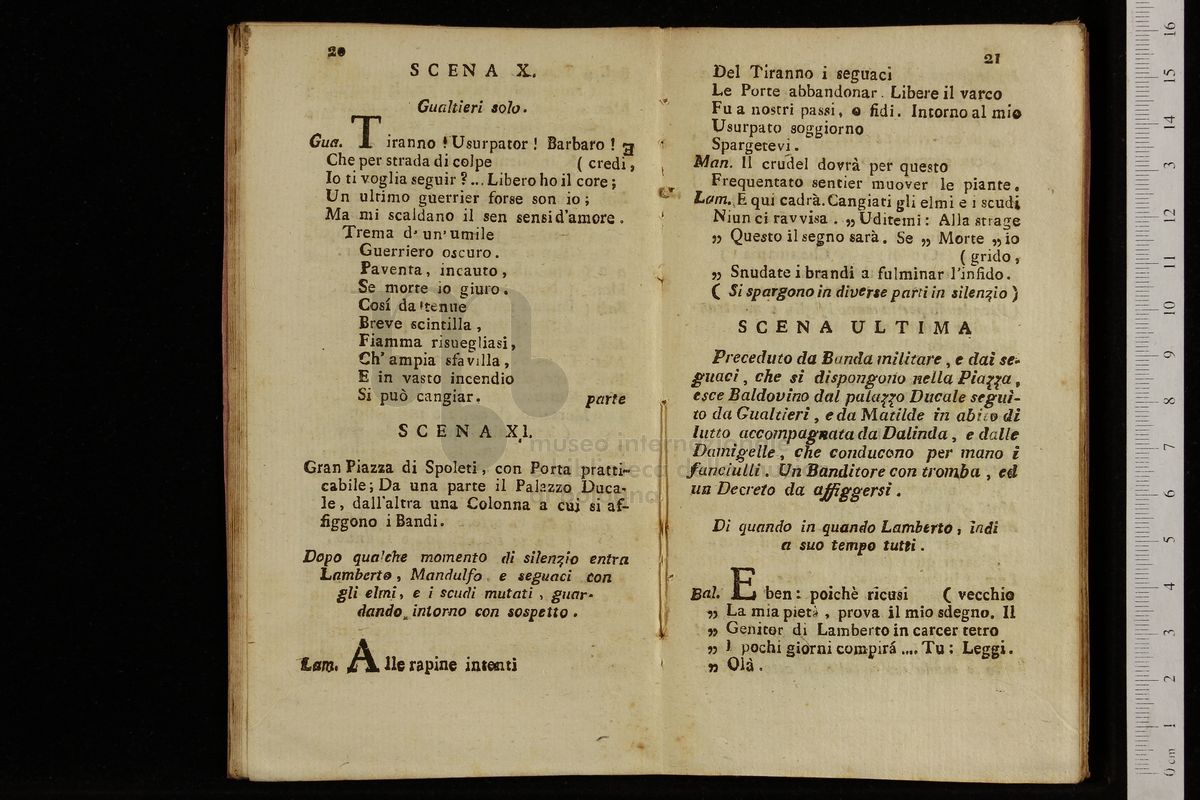 20
SCENA X.
Gualtieri solo.
Gua. Tiranno! Usurpator! Barbaro! E
Che per strada di colpe ( credi,
Io ti voglia seguir?... Libero ho il core;
Un ultimo guerrier forse son io;
Ma mi scaldano il sen sensi d'amore.
Trema d' un' umile
Guerriero oscuro.
Paventa, incauto,
Se morte io giuro.
Cosí da tenue
Breve scintilla,
Fiamma risuegliasi,
Ch' ampia sfavilla,
E in vasto incendio
Si può cangiar. parte
SCENA XI.
Gran Piazza di Spoleti, con Porta pratti-
cabile; Da una parte il Palazzo Duca-
le, dall'altra una Colonna a cui si af-
figgono i Bandi.
Dopo qualche momento di silenzio entra
Lamberto, Mandulfo, e seguaci con
gli elmi, e i scudi mutati, guar-
dando intorno con sospetto.
Lam. Alle rapine intenti
21
Del Tiranno i seguaci
Le Porte abbandonar. Libere il varco
Fu a nostri passi, o fidi. Intorno al mio
Usurpato soggiorno
Spargetevi.
Man. Il crudel dovrà per questo
Frequentato sentier muover le piante.
Lam. E qui cadrà. Cangiati gli elmi e i scudi
Niun ci ravvisa. „ Uditemi: Alla strage
„ Questo il segno sarà. Se „ Morte „ io
( grido,
„ Snudate i brandi a fulminar l'infido.
( Si spargono in diverse parti in silenzio )
SCENA ULTIMA
Preceduto da Banda militare, e dai se-
guaci, che si dispongono nella Piazza,
esce Baldovino dal palazzo Ducale segui-
to da Gualtieri, e da Matilde in abito di
lutto accompagnata da Dalinda, e dalle
Damigelle, che conducono per mano i
fanciulli. Un Banditore con tromba, ed
un Decreto da affiggersi.
Di quando in quando Lamberto, indi
a suo tempo tutti.
Bal. E ben: poichè ricusi ( vecchio
„ La mia pietà, prova il mio sdegno. Il
„ Genitor di Lamberto in carcer tetro
„ I pochi giorni compirá .... Tu: Leggi.
„ Olà.
museo internazionale
e biblioteca della musica
di bologna
0 cm 1 2 3 4 5 6 7 8 9 10 11 12 13 14 15 16